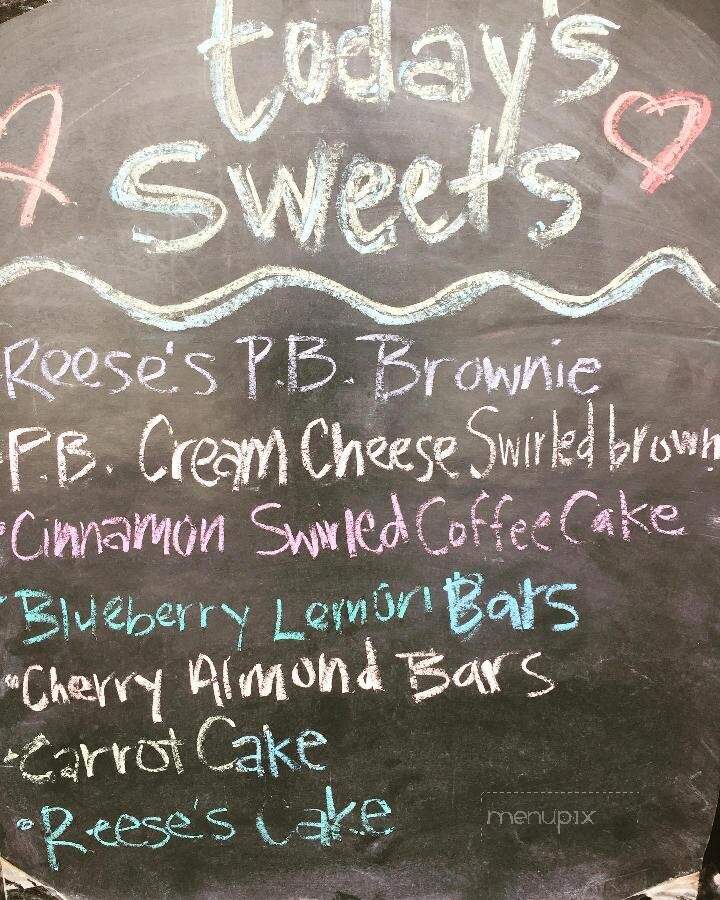 today's
sweets
Reese's P.B. Brownie
P.B. Cream Cheese Swirled brown
• Cinnamon Swirled Coffee Cake
• Blueberry Lemon Bars
• Cherry Almond Bars
• Carrot Cake
• Reese's Cake
menupix